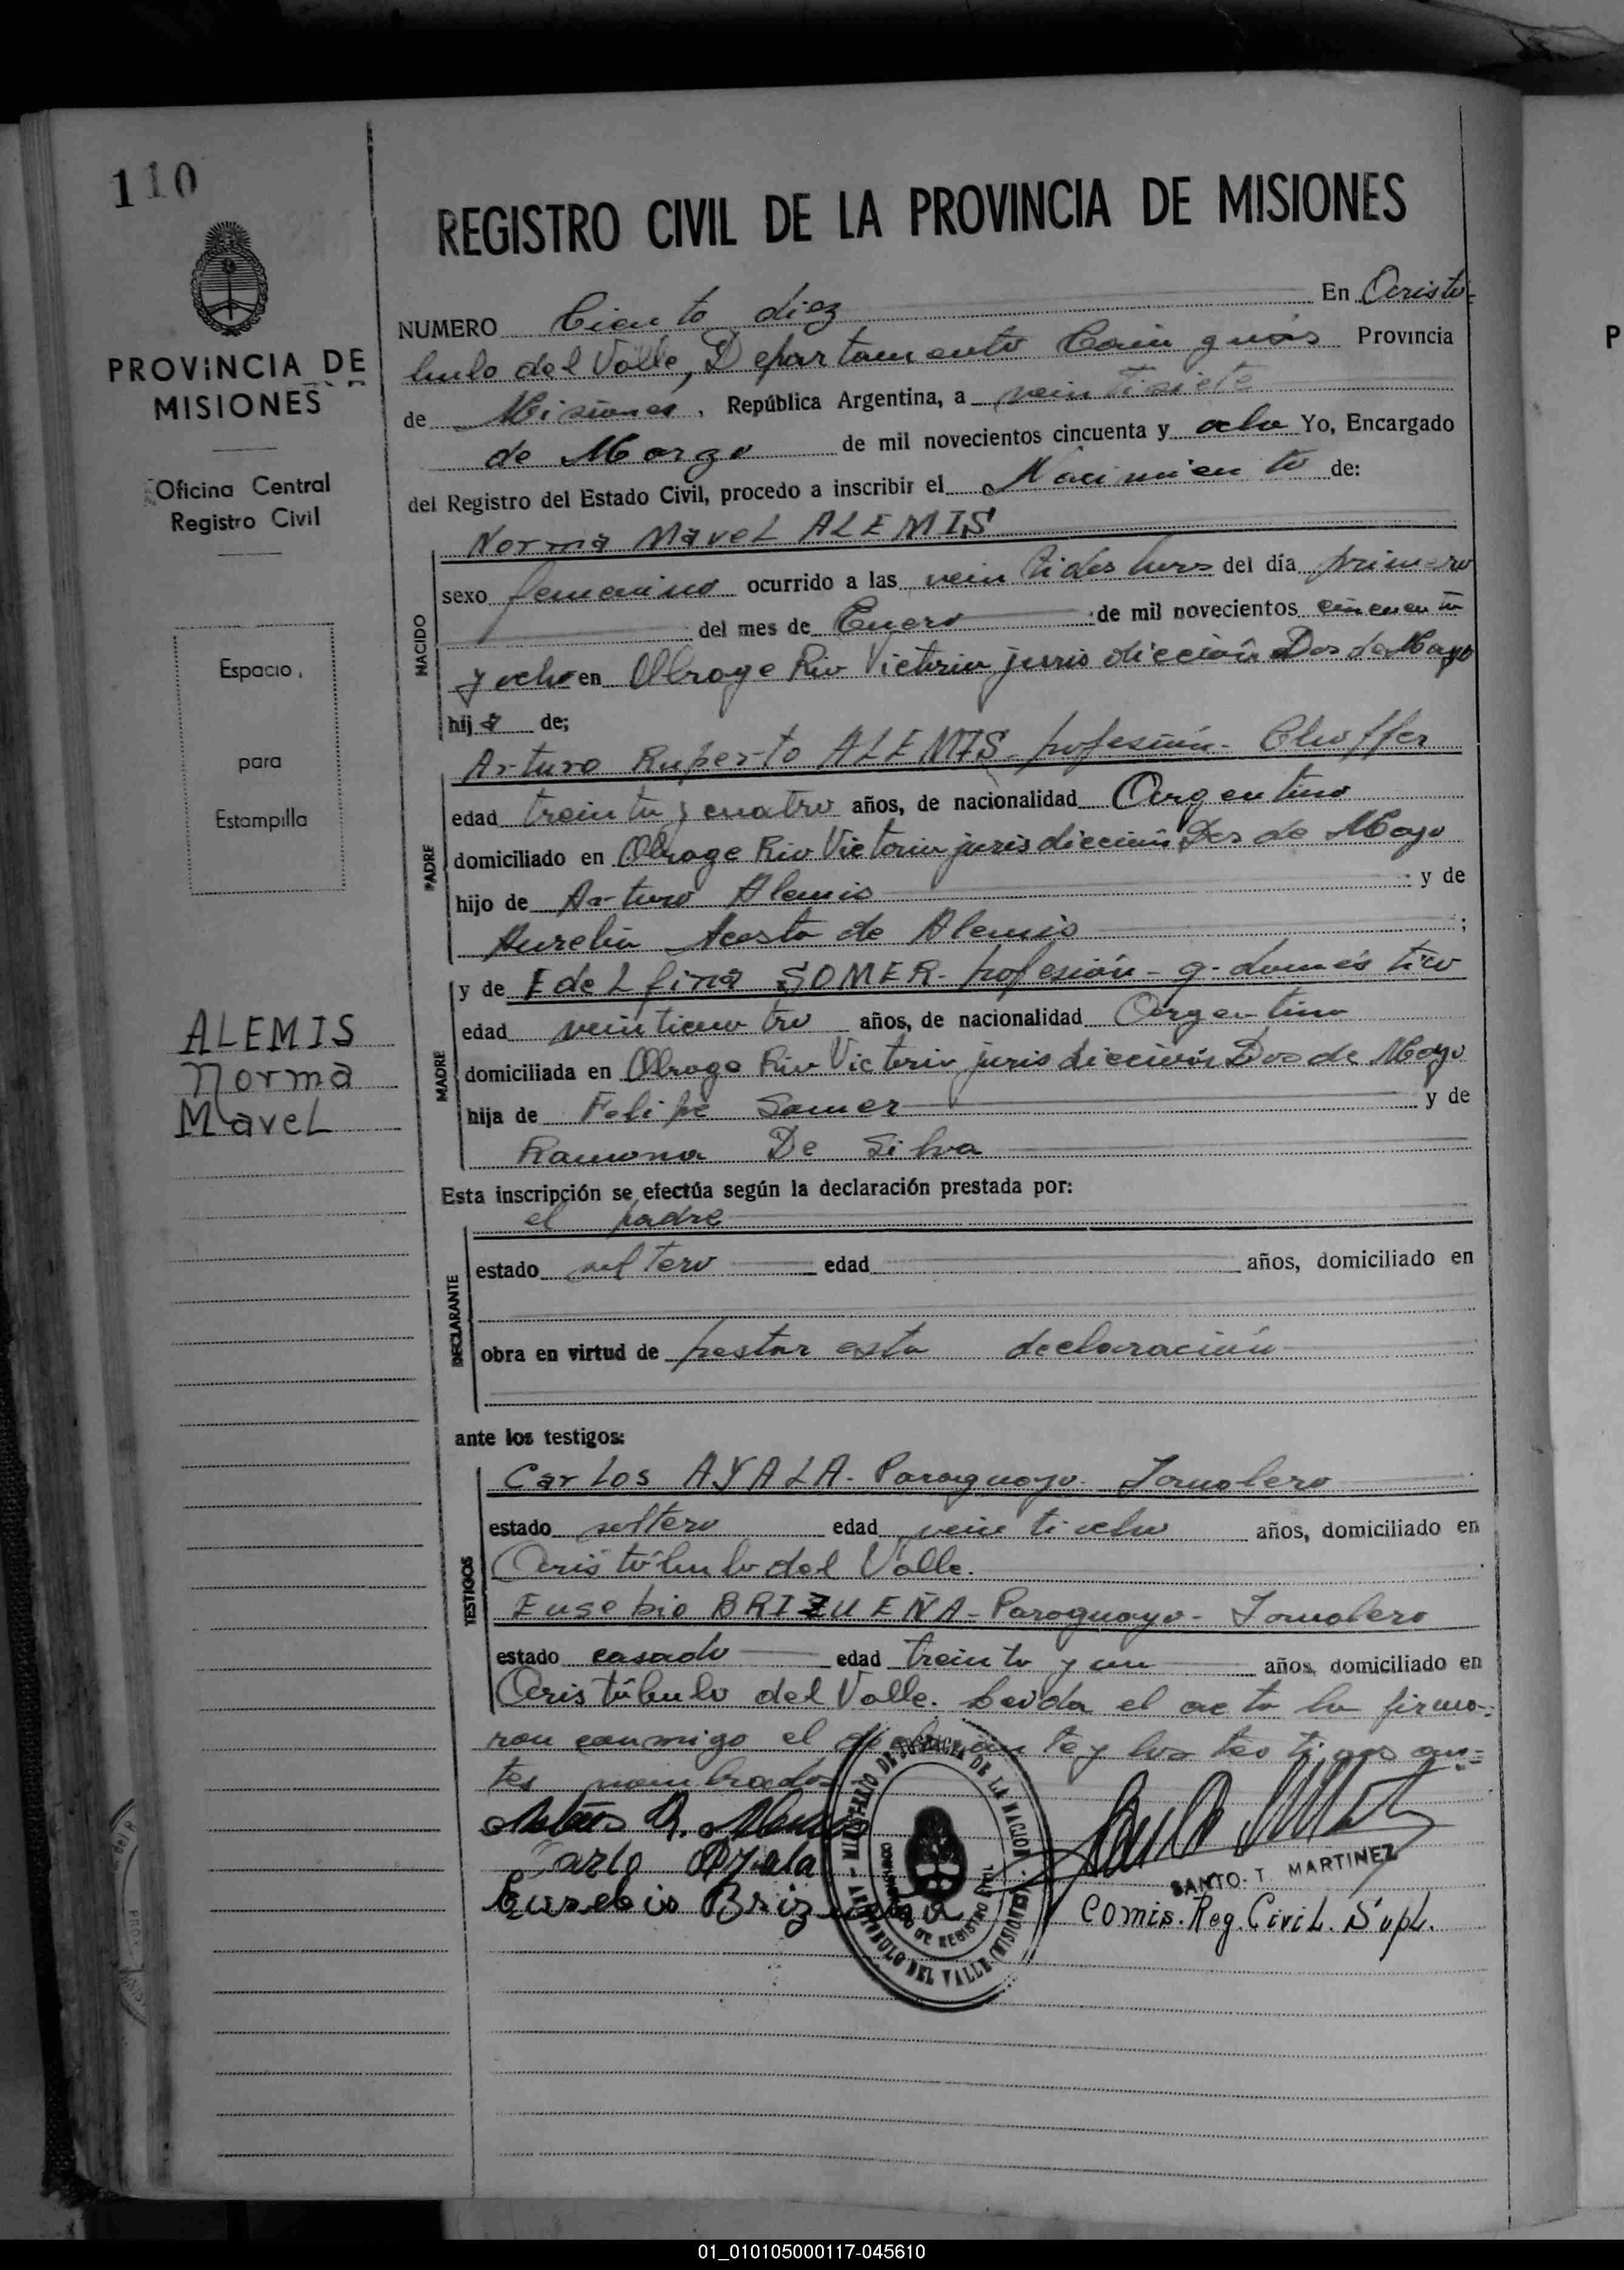 110
REGISTRO CIVIL DE LA PROVINCIA DE MISIONES
PROVINCIA DE
MISIONES
Oficina Central
Registro Civil
Espacio
para
Estampilla
ALEMIS
Norma
Mavel
NUMERO Ciento diez En Aristó-
bulo del Valle, Departamento Cainguás Provincia
de Misiones, República Argentina, a veintisiete
de Marzo de mil novecientos cincuenta y ocho Yo, Encargado
del Registro del Estado Civil, procedo a inscribir el Nacimiento de:
Norma Mavel ALEMIS
NACIDO
sexo femenino ocurrido a las veintidos horas del día primero
del mes de Enero de mil novecientos cincuenta
y ocho en Obrage Rio Victoria jurisdicción Dos de Mayo
hija de;
Arturo Ruperto ALEMIS - profesión - Choffer
PADRE
edad treinta y cuatro años, de nacionalidad Argentino
domiciliado en Obrage Rio Victoria jurisdicción Dos de Mayo
hijo de Arturo Alemis y de
Aurelia Acosta de Alemis ;
y de Edelfina SOMER - profesión - q. doméstico
MADRE
edad veinticuatro años, de nacionalidad Argentina
domiciliada en Obrage Rio Victoria jurisdicción Dos de Mayo
hija de Felipe Somer y de
Ramona De Silva
Esta inscripción se efectúa según la declaración prestada por:
el padre
DECLARANTE
estado soltero edad años, domiciliado en
obra en virtud de prestar esta declaración
ante los testigos:
TESTIGOS
Carlos AYALA - Paraguayo - Jornalero
estado soltero edad veintiocho años, domiciliado en
Aristóbulo del Valle.
Eusebio BRIZUEÑA - Paraguayo - Jornalero
estado casado edad treinta y un años, domiciliado en
Aristóbulo del Valle. Leida el acta la firma-
ron conmigo el declarante y los testigos an-
tes nombrados
Arturo R. Alemis
Carlo Ayala
Eusebio Brizueña
MINISTERIO DE JUSTICIA DE LA NACION
DE REGISTRO CIVIL
ARISTOBULO DEL VALLE (MISIONES)
SANTO T. MARTINEZ
Comis. Reg. Civil. Supl.
P
01_010105000117-045610